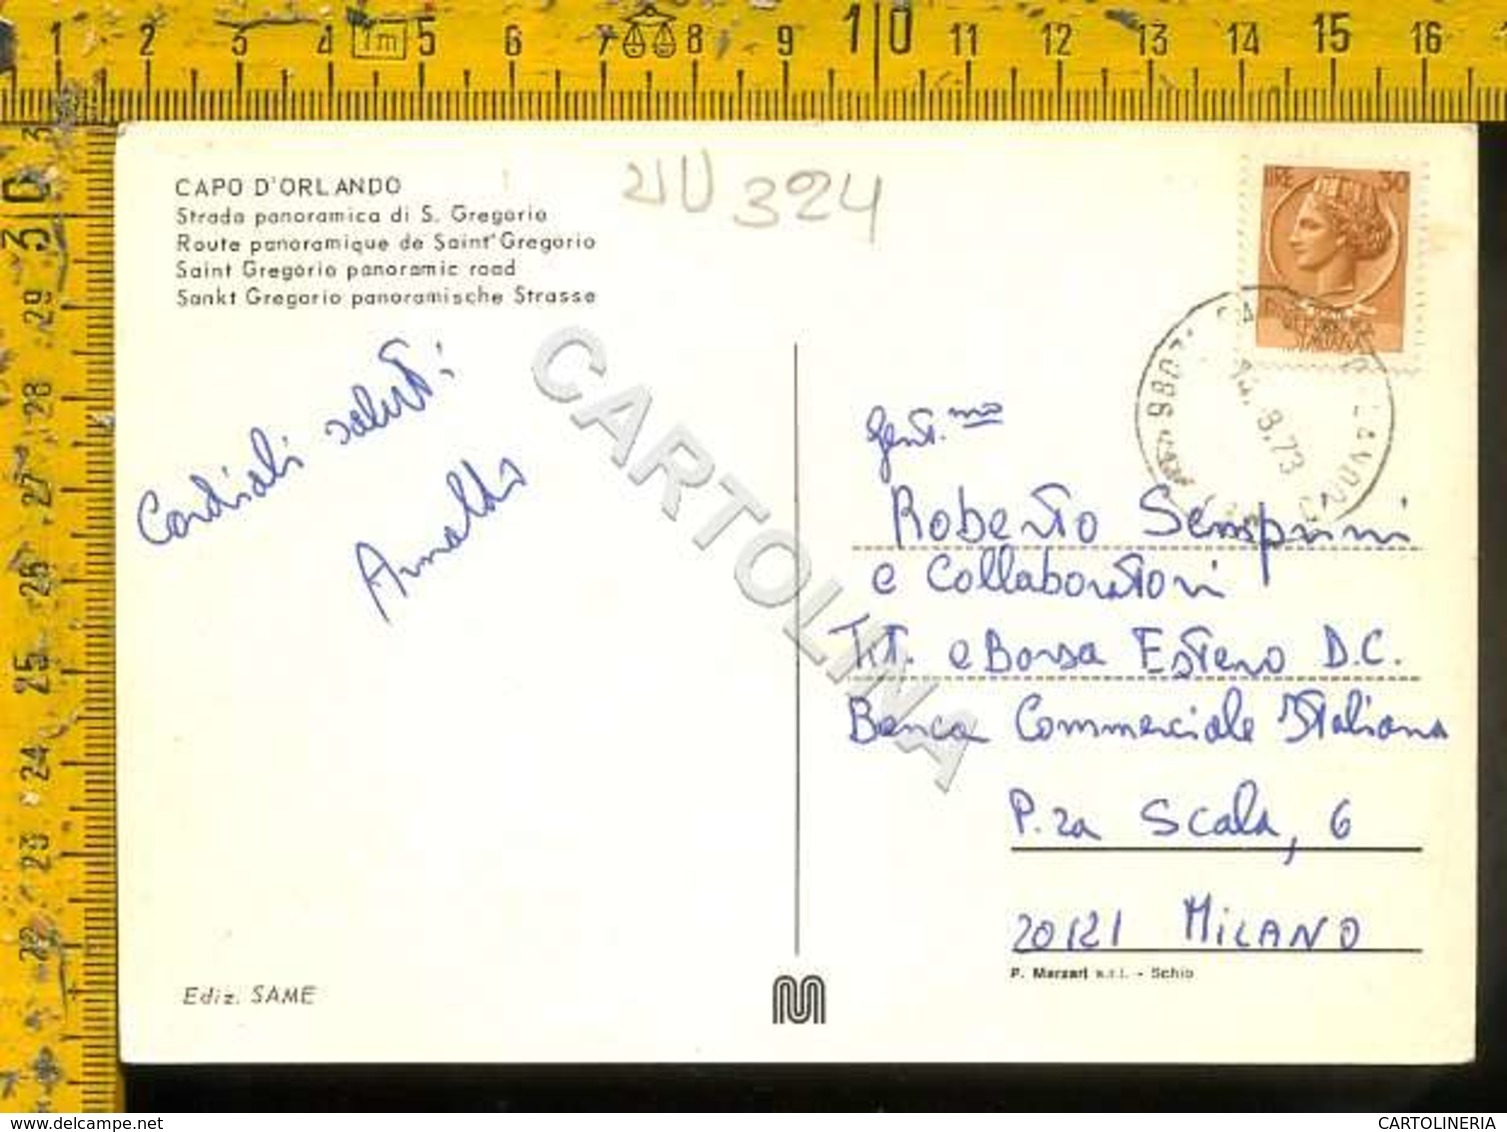 1 2 3 4 1m 5 6 7 8 9 10 11 12 13 14 15 16
30 29 28 27 26 25 24 23 22
CAPO D'ORLANDO
Strada panoramica di S. Gregorio
Route panoramique de Saint Gregorio
Saint Gregorio panoramic road
Sankt Gregorio panoramische Strasse
324
LIRE 30
98071
8.73
Cordiali saluti
Arnaldo
Gent.mo
Roberto Semprini
e Collaboratori
Tit. e Borsa Estero D.C.
Banca Commerciale Italiana
P.za Scala, 6
20121 MILANO
P. Marzari s.r.l. - Schio
Ediz. SAME
CARTOLINA
delcampe.net
CARTOLINERIA